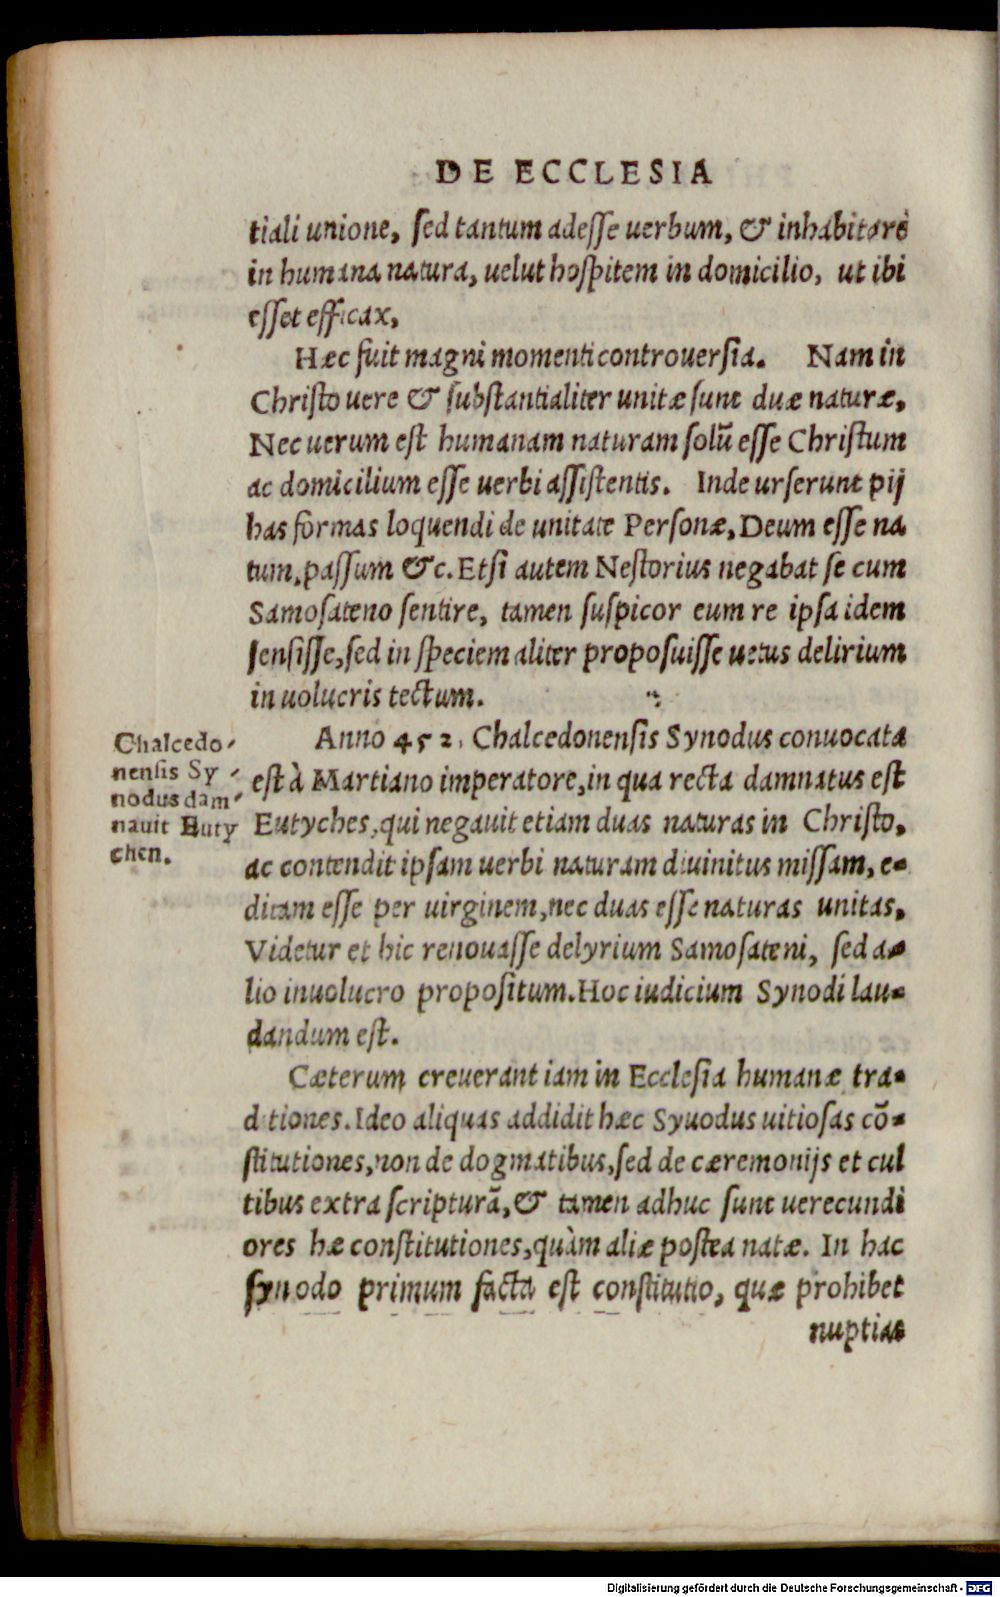 DE ECCLESIA
tiali unione, sed tantum adesse uerbum, & inhabitare
in humana natura, uelut hospitem in domicilio, ut ibi
esset efficax,
Hæc fuit magni momenti controuersia. Nam in
Christo uere & substantialiter unitæ sunt duæ naturæ,
Nec uerum est humanam naturam solũ esse Christum
ac domicilium esse uerbi assistentis. Inde urserunt pij
has formas loquendi de unitate Personæ, Deum esse na
tum, passum &c. Etsi autem Nestorius negabat se cum
Samosateno sentire, tamen suspicor eum re ipsa idem
sensisse, sed in speciem aliter proposuisse uetus delirium
in uolucris tectum.
Anno 452. Chalcedonensis Synodus conuocata
est à Martiano imperatore, in qua recta damnatus est
Eutyches, qui negauit etiam duas naturas in Christo,
ac contendit ipsam uerbi naturam diuinitus missam, e-
ditam esse per uirginem, nec duas esse naturas unitas,
Videtur et hic renouasse delyrium Samosateni, sed a-
lio inuolucro propositum. Hoc iudicium Synodi lau-
dandum est.
Chalcedo-
nensis Sy-
nodus dam-
nauit Euty
chen.
Cæterum creuerant iam in Ecclesia humanæ tra-
ditiones. Ideo aliquas addidit hæc Syuodus uitiosas cõ-
stitutiones, non de dogmatibus, sed de cæremonijs et cul
tibus extra scripturã, & tamen adhuc sunt uerecundi
ores hæ constitutiones, quàm aliæ postea natæ. In hac
synodo primum facta est constitutio, quæ prohibet
nuptias
Digitalisierung gefördert durch die Deutsche Forschungsgemeinschaft - DFG